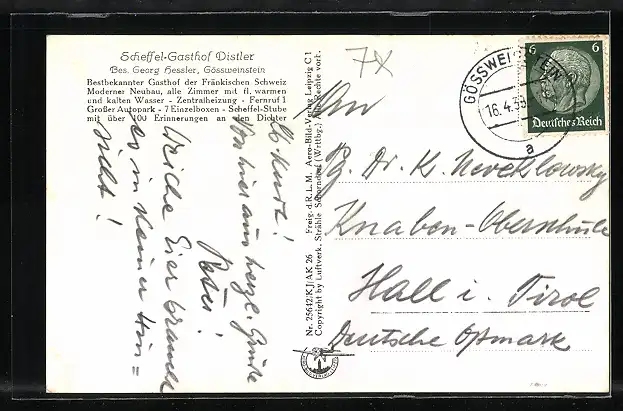 Scheffel-Gasthof Distler
Bes. Georg Hessler, Gössweinstein
Bestbekannter Gasthof der Fränkischen Schweiz
Moderner Neubau, alle Zimmer mit fl. warmen
und kalten Wasser - Zentralheizung - Fernruf 1
Großer Autopark - 7 Einzelboxen - Scheffel-Stube
mit über 100 Erinnerungen an den Dichter
Lb. Kurt!
Von hier aus herzl. Grüße
Peter!
Welche Eier brauch
es in keiner Hin=
sicht!
Nr. 25642/KJ/AK 26 Freig. d. R. L. M. Aero-Bild-Verlag Leipzig C 1
Copyright by Luftverk. Strähle Schorndorf (Wttbg.) Alle Rechte vorb.
7X
GÖSSWEINSTEIN
16.4.39
a
6 6
Deutsches Reich
An
Pg. Dr. K. Neveklowsky
Knaben-Oberschule
Hall i. Tirol
Deutsche Ostmark